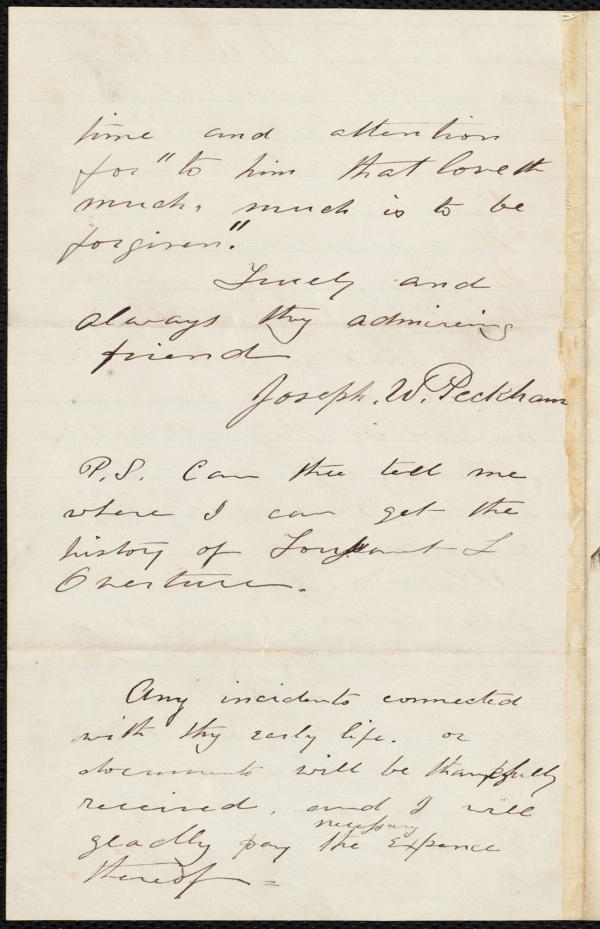 time and attention
for "to him that loveth
much, much is to be
forgiven."
Truely and
always thy admireing
friend
Joseph. W. Peckham
P.S. Can thee tell me
where I can get the
history of Tousaunt L
Overture.
Any incidents connected
with thy early life. or
documents will be thankfully
received, and I will
necessary
gladly pay the Expence
thereof =